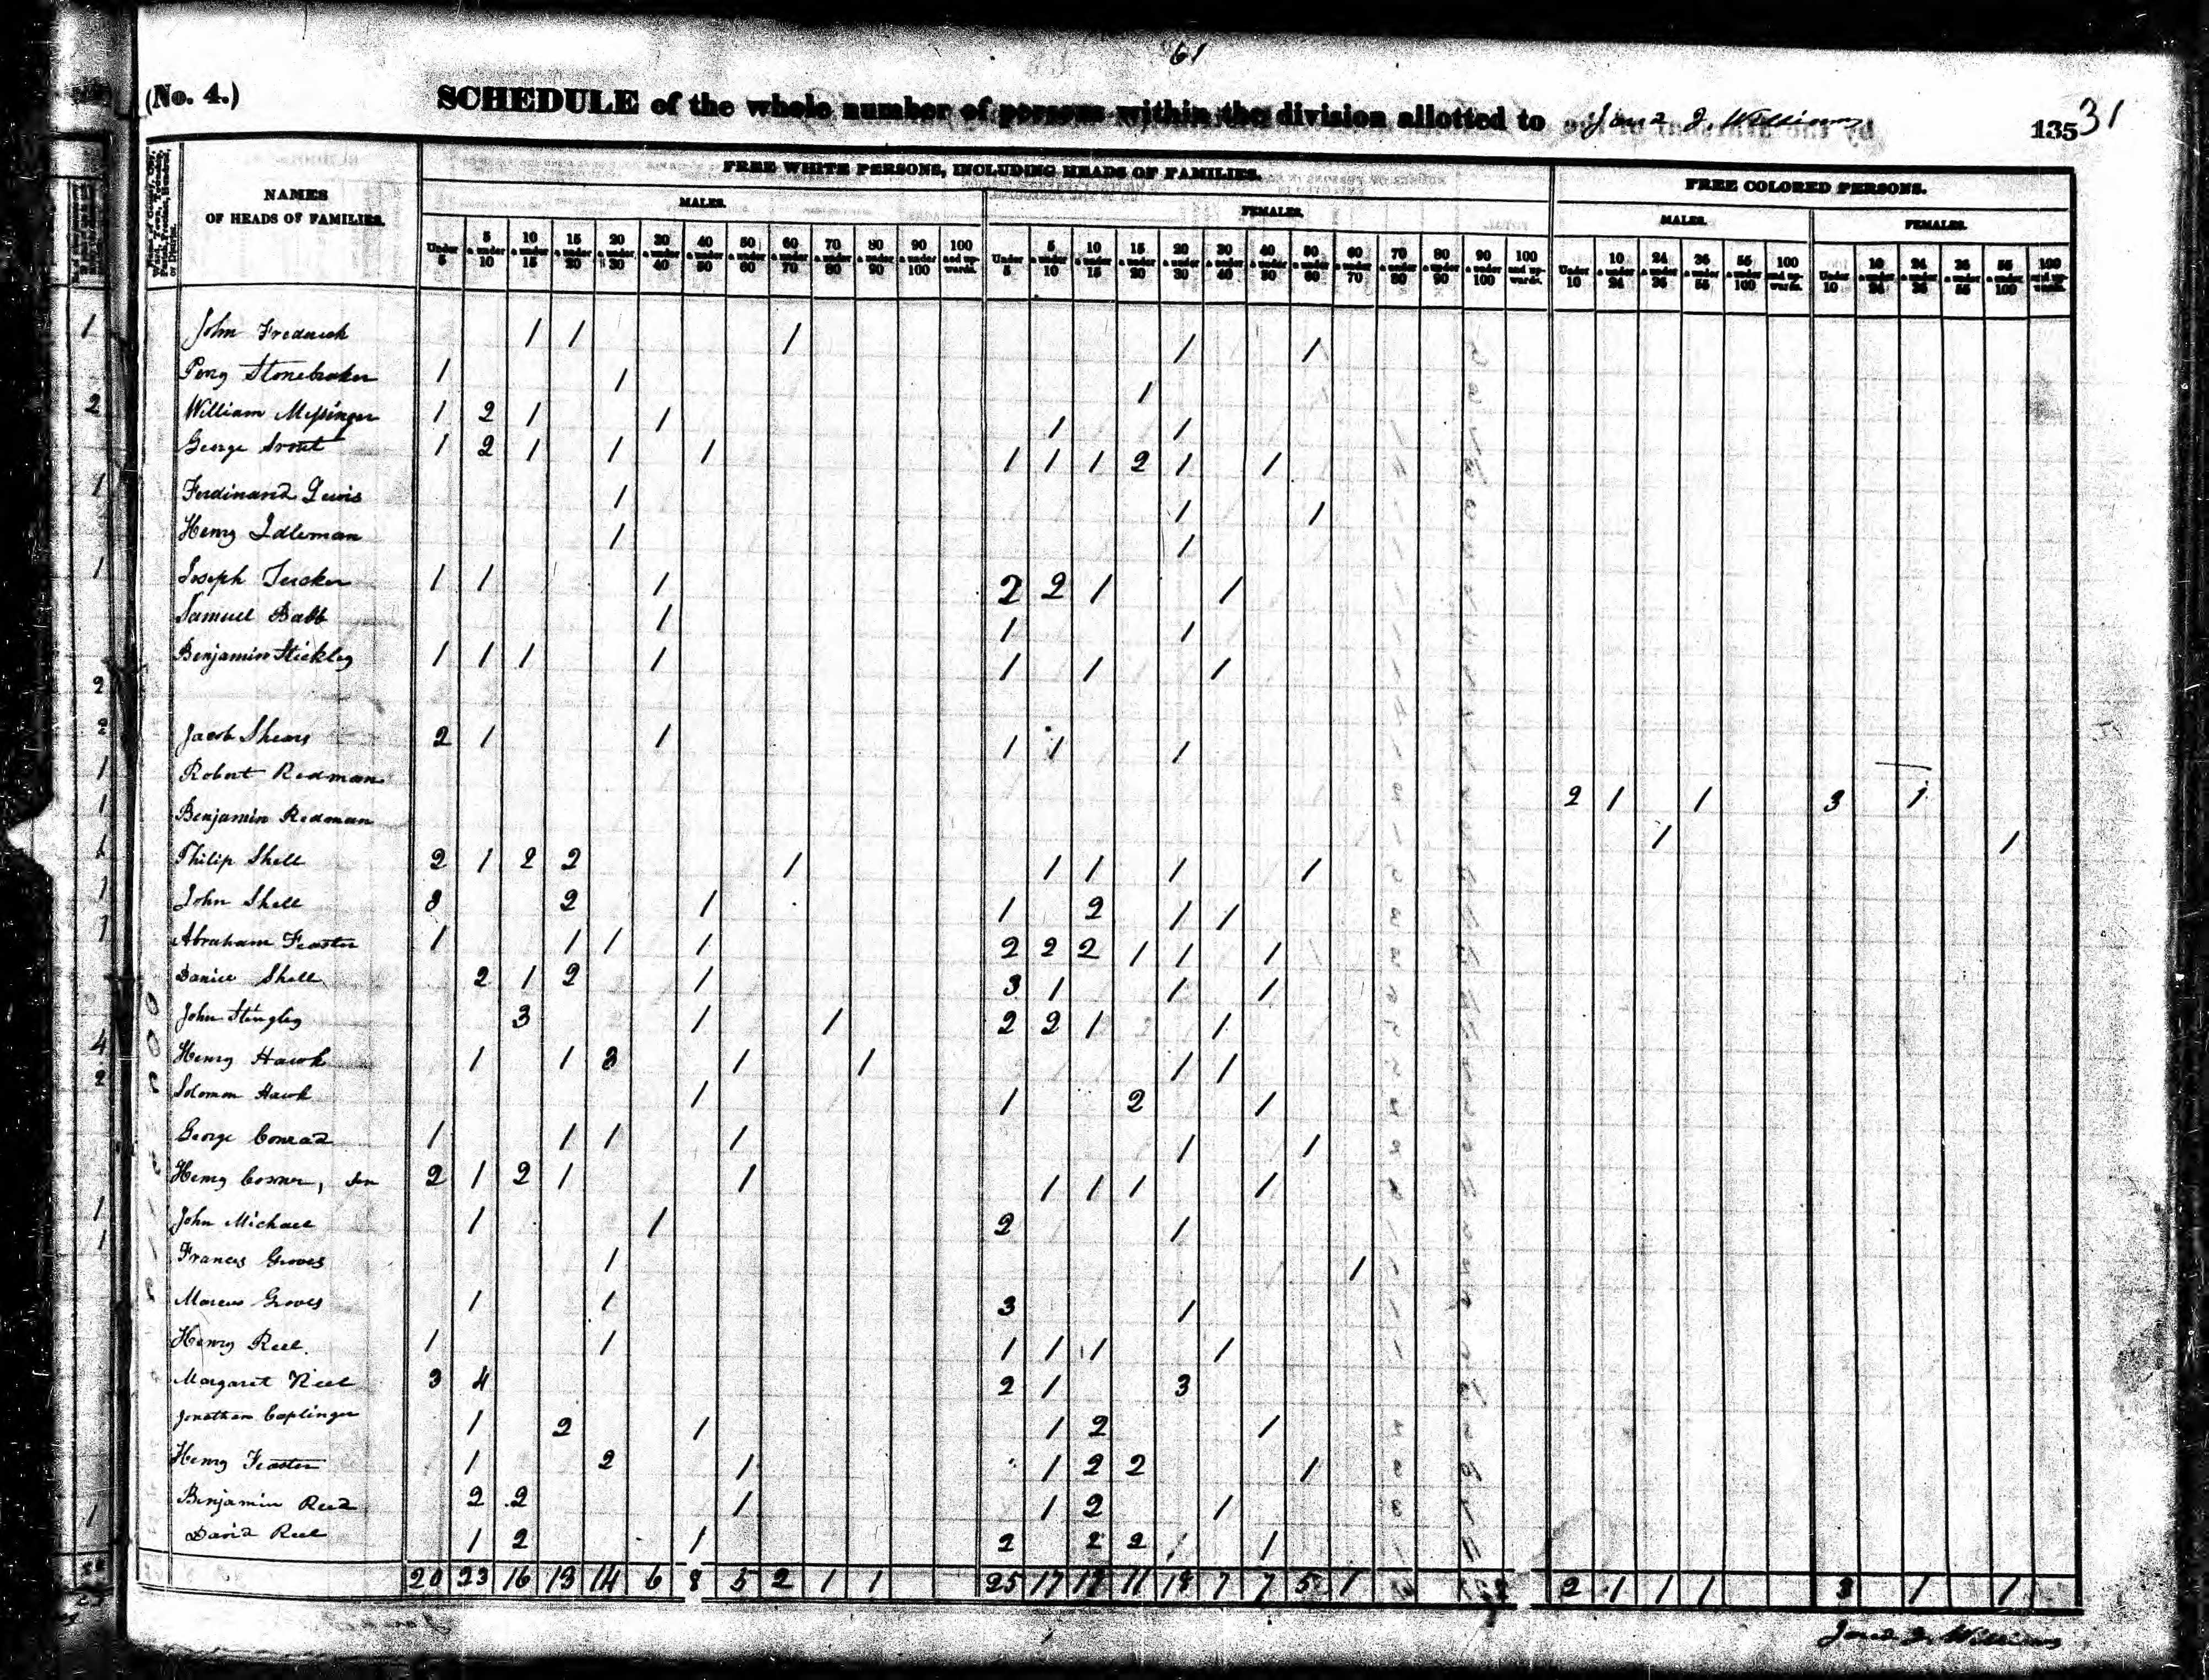 61
(No. 4.) SCHEDULE of the whole number of persons within the division allotted to J. Williams 135 31
NAMES OF HEADS OF FAMILIES.
FREE WHITE PERSONS, INCLUDING HEADS OF FAMILIES.
FREE COLORED PERSONS.
MALES. FEMALES. MALES. FEMALES.
Under 5 5 & under 10 10 & under 15 15 & under 20 20 & under 30 30 & under 40 40 & under 50 50 & under 60 60 & under 70 70 & under 80 80 & under 90 90 & under 100 100 and upwards. Under 5 5 & under 10 10 & under 15 15 & under 20 20 & under 30 30 & under 40 40 & under 50 50 & under 60 60 & under 70 70 & under 80 80 & under 90 90 & under 100 100 and upwards. Under 10 10 & under 24 24 & under 36 36 & under 55 55 & under 100 100 and upwards. Under 10 10 & under 24 24 & under 36 36 & under 55 55 & under 100 100 and upwards.
John Frederick 1 1 1 1 1
Perry Stonebraker 1 1 1
William Messinger 1 2 1 1 1 1
George 1 2 1 1 1 1 1 1 2 1 1
Ferdinand Lewis 1 1 1
Henry Idleman 1 1
Joseph Tucker 1 1 1 2 2 1 1
Samuel Babb 1 1 1
Benjamin Stickley 1 1 1 1 1 1 1
Jacob Shears 2 1 1 1 1 1
Robert Redman 2 1 1 3 1
Benjamin Redman 1 1
Philip Shell 2 1 2 2 1 1 1 1 1
John Shell 3 2 1 1 2 1 1
Abraham Feaster 1 1 1 1 2 2 2 1 1 1
Daniel Shell 2 1 2 1 3 1 1 1
John Stingley 3 1 1 2 2 1 1
Henry Hawk 1 1 3 1 1 1 1
Solomon Hawk 1 1 2 1
George Conrad 1 1 1 1 1 1
Henry Cosner, Sen 2 1 2 1 1 1 1 1 1
John Michael 1 1 2 1
Frances Groves 1 1
Marcus Groves 1 1 3 1
Henry Reel 1 1 1 1 1 1
Margaret Reel 3 4 2 1 3
Jonathan Caplinger 1 2 1 1 2 1
Henry Feaster 1 2 1 1 2 2 1
Benjamin Reed 2 2 1 1 2 1
David Reel 1 2 1 2 2 2 1
20 23 16 13 14 6 8 5 2 1 1 25 17 17 11 18 7 7 5 1 2 1 1 1 3 1 1